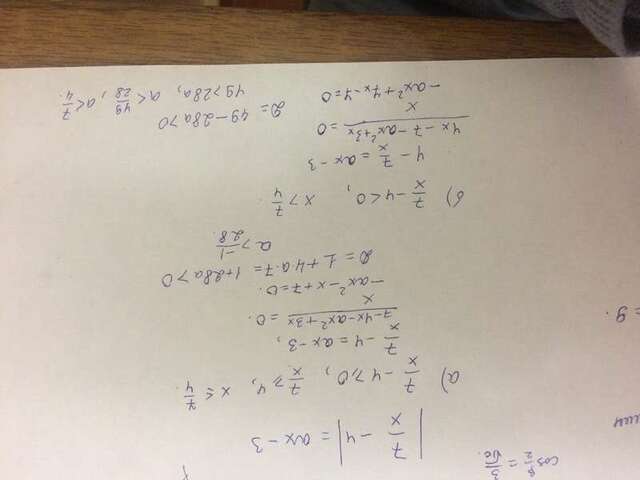 cos α/2 = 3/√c.
| 7/x - 4 | = ax - 3
= 9.
а) 7/x - 4 ≥ 0, 7/x ≥ 4, x ≤ 7/4
7/x - 4 = ax - 3,
7-4x-ax²+3x / x = 0.
-ax² - x + 7 = 0.
D = 1 + 4a·7 = 1+28a > 0
a > -1/28.
б) 7/x - 4 < 0, x > 7/4
4 - 7/x = ax - 3
4x - 7 - ax² + 3x / x = 0
-ax² + 7x - 7 = 0
D = 49 - 28a > 0
49 > 28a, a < 49/28, a < 7/4.